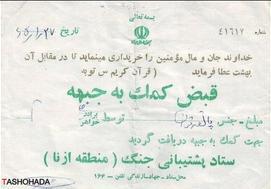 بسمه تعالی
شماره ۴۱۶۱۷
تاریخ ۶۵/۱/۲۷
خداوند جان و مال مؤمنین را خریداری مینماید تا در مقابل آن
بهشت عطا فرماید ( قرآن کریم س توبه
قبض کمك به جبهه
مبلغ - جنس توسط برادر خواهر
جهت کمك به جبهه دریافت گردید
ستاد پشتیبانی جنگ ( منطقه ازنا )
محل ستاد - جهاد سازندگی تلفن - ۱۶۶
TASHOHADA